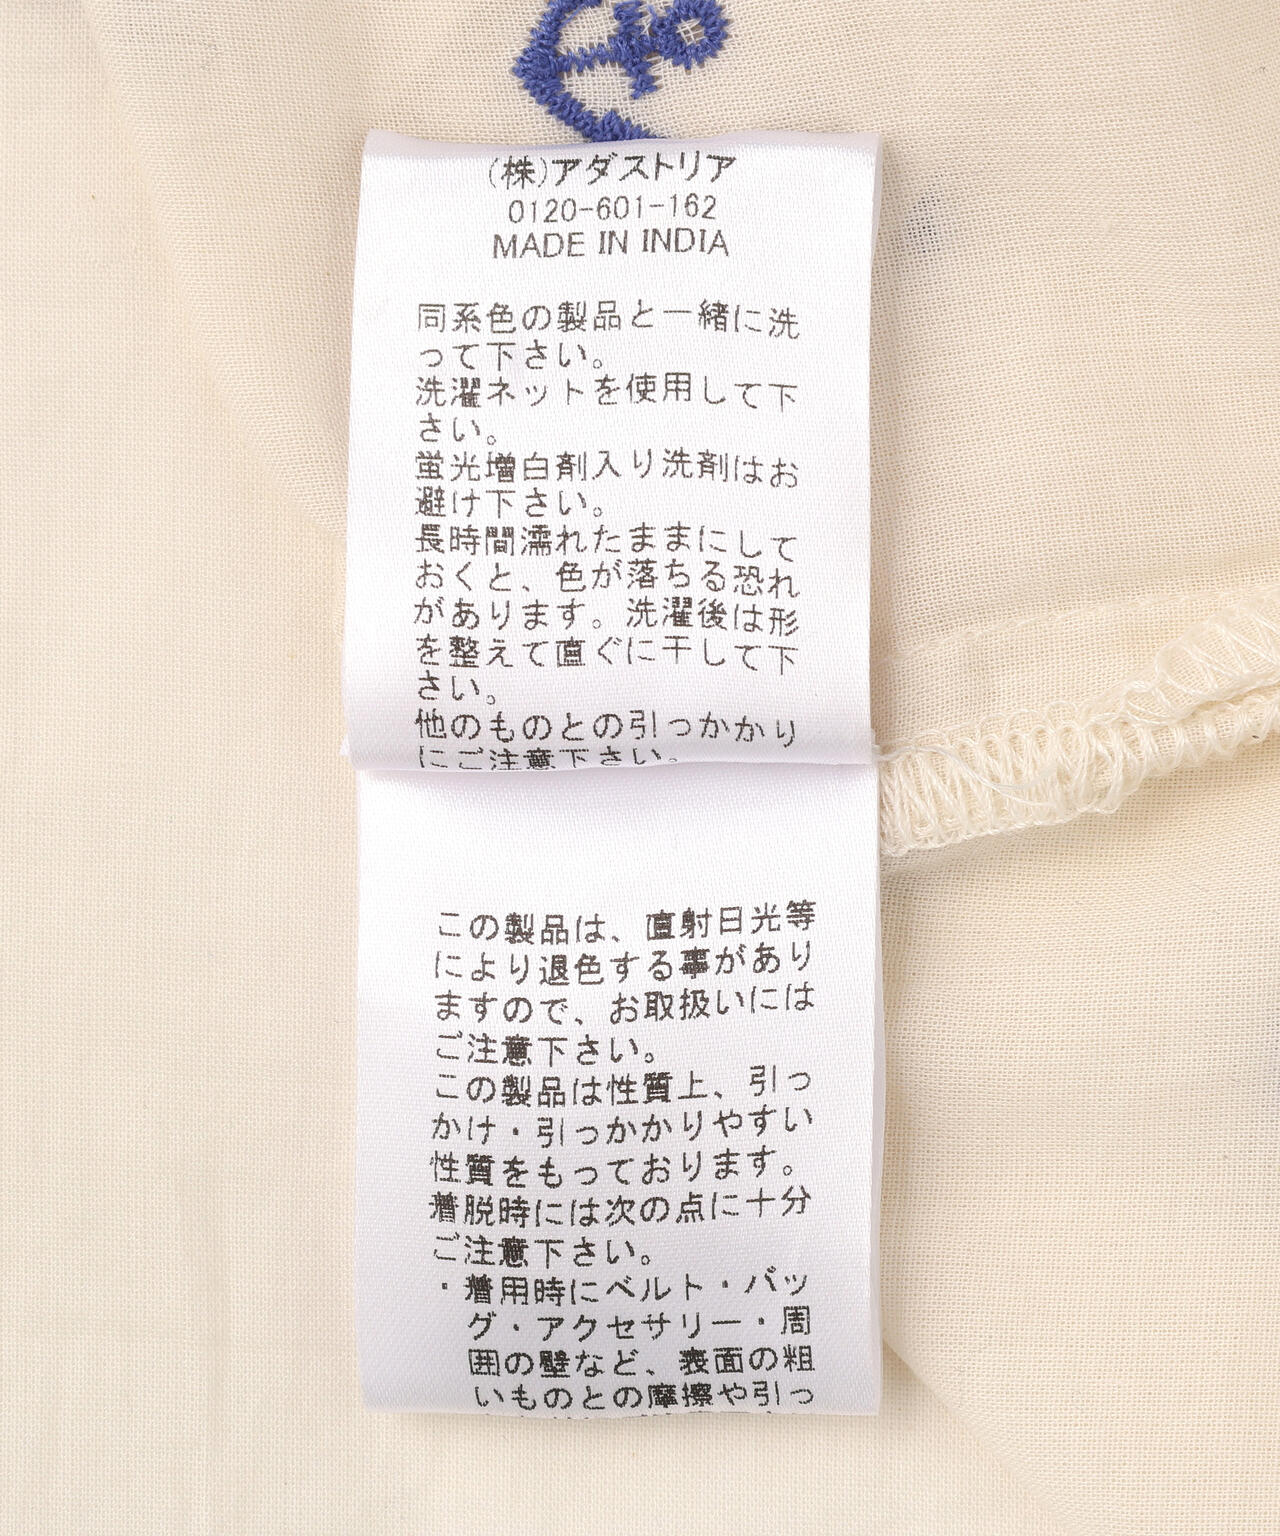 (株)アダストリア
0120-601-162
MADE IN INDIA
同系色の製品と一緒に洗
って下さい。
洗濯ネットを使用して下
さい。
蛍光増白剤入り洗剤はお
避け下さい。
長時間濡れたままにして
おくと、色が落ちる恐れ
があります。洗濯後は形
を整えて直ぐに干して下
さい。
他のものとの引っかかり
にご注意下さい。
この製品は、直射日光等
により退色する事があり
ますので、お取扱いには
ご注意下さい。
この製品は性質上、引っ
かけ・引っかかりやすい
性質をもっております。
着脱時には次の点に十分
ご注意下さい。
・着用時にベルト・バッ
グ・アクセサリー・周
囲の壁など、表面の粗
いものとの摩擦や引っ